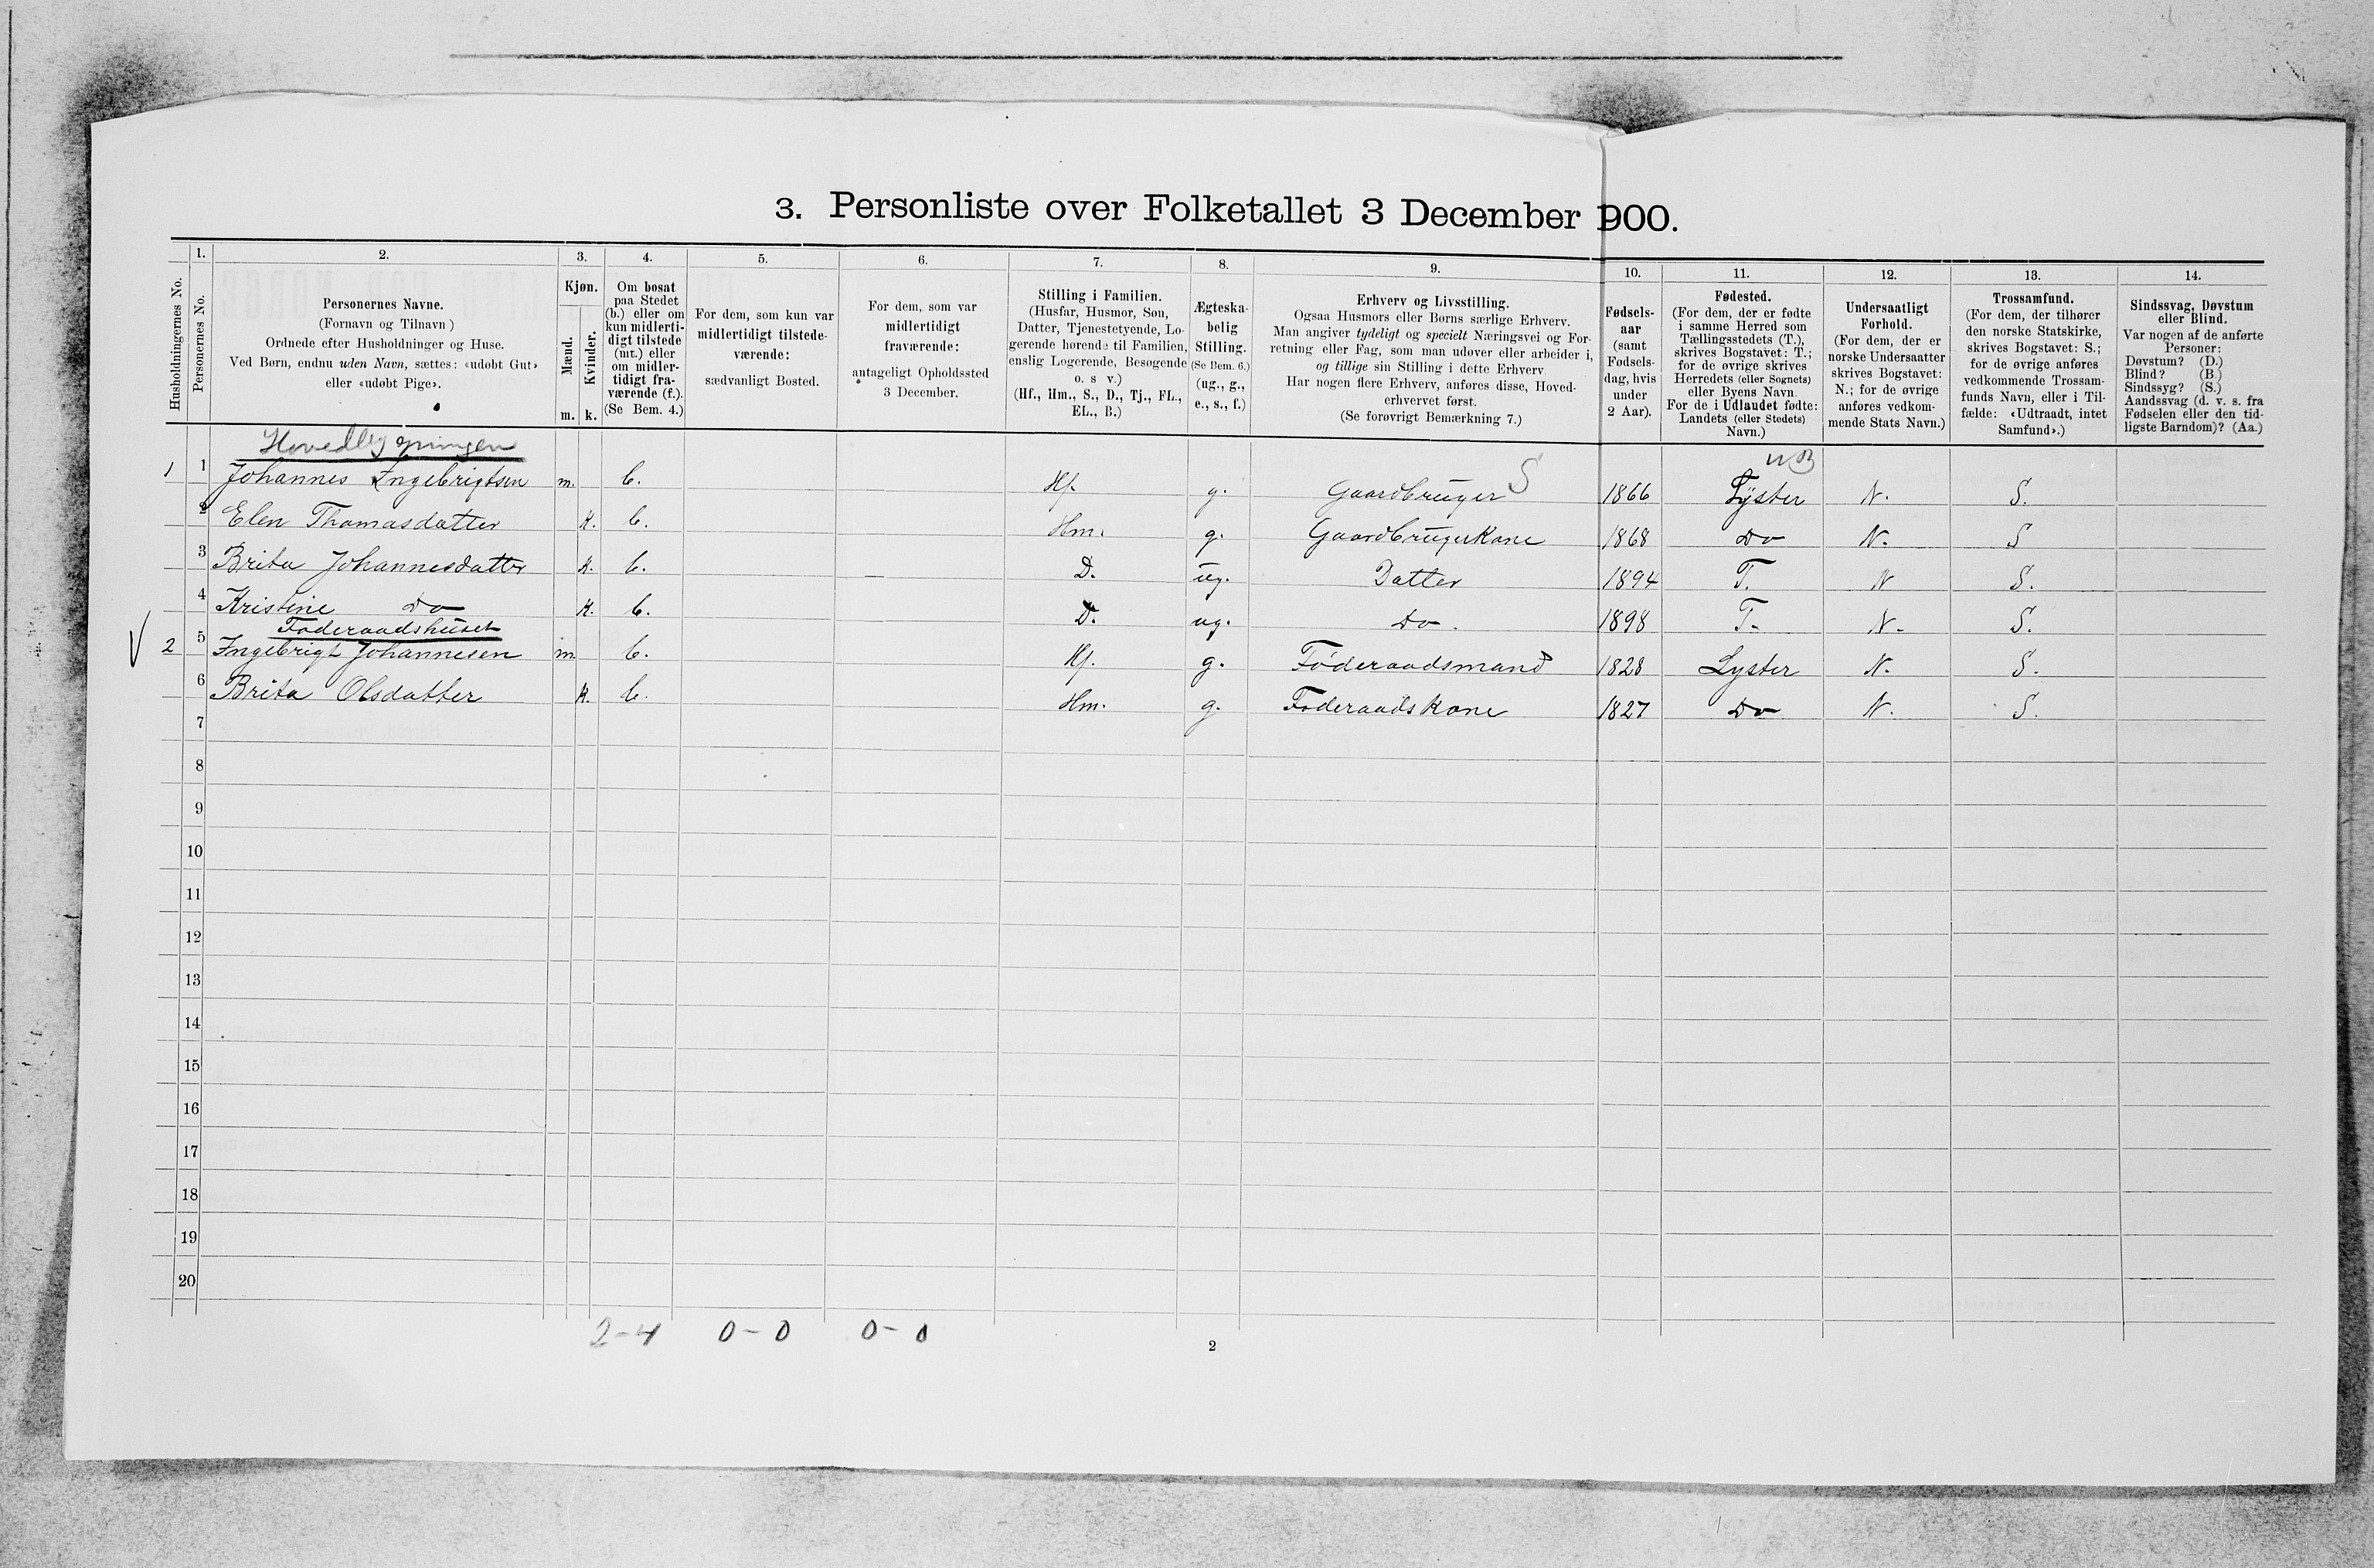 3. Personliste over Folketallet 3 December 1900.
1. 2. 3. 4. 5. 6. 7. 8. 9. 10. 11. 12. 13. 14.
Husholdningernes No.
Personernes No.
Personernes Navne.
(Fornavn og Tilnavn )
Ordnede efter Husholdninger og Huse.
Ved Børn, endnu uden Navn, sættes: «udøbt Gut»
eller «udøbt Pige».
Kjøn.
Mænd.
Kvinder.
m. k.
Om bosat
paa Stedet
(b.) eller om
kun midlerti-
digt tilstede
(mt.) eller
om midler-
tidigt fra-
værende (f.).
(Se Bem. 4.)
For dem, som kun var
midlertidigt tilstede-
værende:
sædvanligt Bosted.
For dem, som var
midlertidigt
fraværende:
antageligt Opholdssted
3 December.
Stilling i Familien.
(Husfar, Husmor, Søn,
Datter, Tjenestetyende, Lo-
gerende hørende til Familien,
enslig Logerende, Besøgende
o. s v.)
(Hf., Hm., S., D., Tj., FL.,
EL., B.)
Ægteska-
belig
Stilling.
(Se Bem. 6.)
(ug., g.,
e., s., f.)
Erhverv og Livsstilling.
Ogsaa Husmors eller Børns særlige Erhverv.
Man angiver tydeligt og specielt Næringsvei og For-
retning eller Fag, som man udøver eller arbeider i,
og tillige sin Stilling i dette Erhverv
Har nogen flere Erhverv, anføres disse, Hoved-
erhvervet først.
(Se forøvrigt Bemærkning 7.)
Fødsels-
aar
(samt
Fødsels-
dag, hvis
under
2 Aar).
Fødested.
(For dem, der er fødte
i samme Herred som
Tællingsstedets (T.),
skrives Bogstavet: T.;
for de øvrige skrives
Herredets (eller Sognets)
eller Byens Navn
For de i Udlandet fødte:
Landets (eller Stedets)
Navn.)
Undersaatligt
Forhold.
(For dem, der er
norske Undersaatter
skrives Bogstavet:
N.; for de øvrige
anføres vedkom-
mende Stats Navn.)
Trossamfund.
(For dem, der tilhører
den norske Statskirke,
skrives Bogstavet: S.;
for de øvrige anføres
vedkommende Trossam-
funds Navn, eller i Til-
fælde: «Udtraadt, intet
Samfund».)
Sindssvag, Døvstum
eller Blind.
Var nogen af de anførte
Personer:
Døvstum? (D.)
Blind? (B.)
Sindssyg? (S.)
Aandssvag (d. v. s. fra
Fødselen eller den tid-
ligste Barndom)? (Aa.)
Hovedbygningen
1 1 Johannes Ingebrigtsen m. b. Hf. g. Gaardbruger S 1866 Lyster N. S.
2 Elen Thomasdatter k. b. Hm. g. Gaardbrugerkone 1868 Do N. S
3 Brita Johannesdatter k. b. D. ug. Datter 1894 T. N S.
4 Kristine Do k. b. D. ug. Do. 1898 T. N. S.
Føderaadshuset
2 5 Ingebrigt Johannesen m b. Hf. g. Føderaadsmand 1828 Lyster N. S.
6 Brita Olsdatter k. b. Hm. g. Føderaadskone 1827 Do N. S.
7
8
9
10
11
12
13
14
15
16
17
18
19
20
2-4 0-0 0-0
2